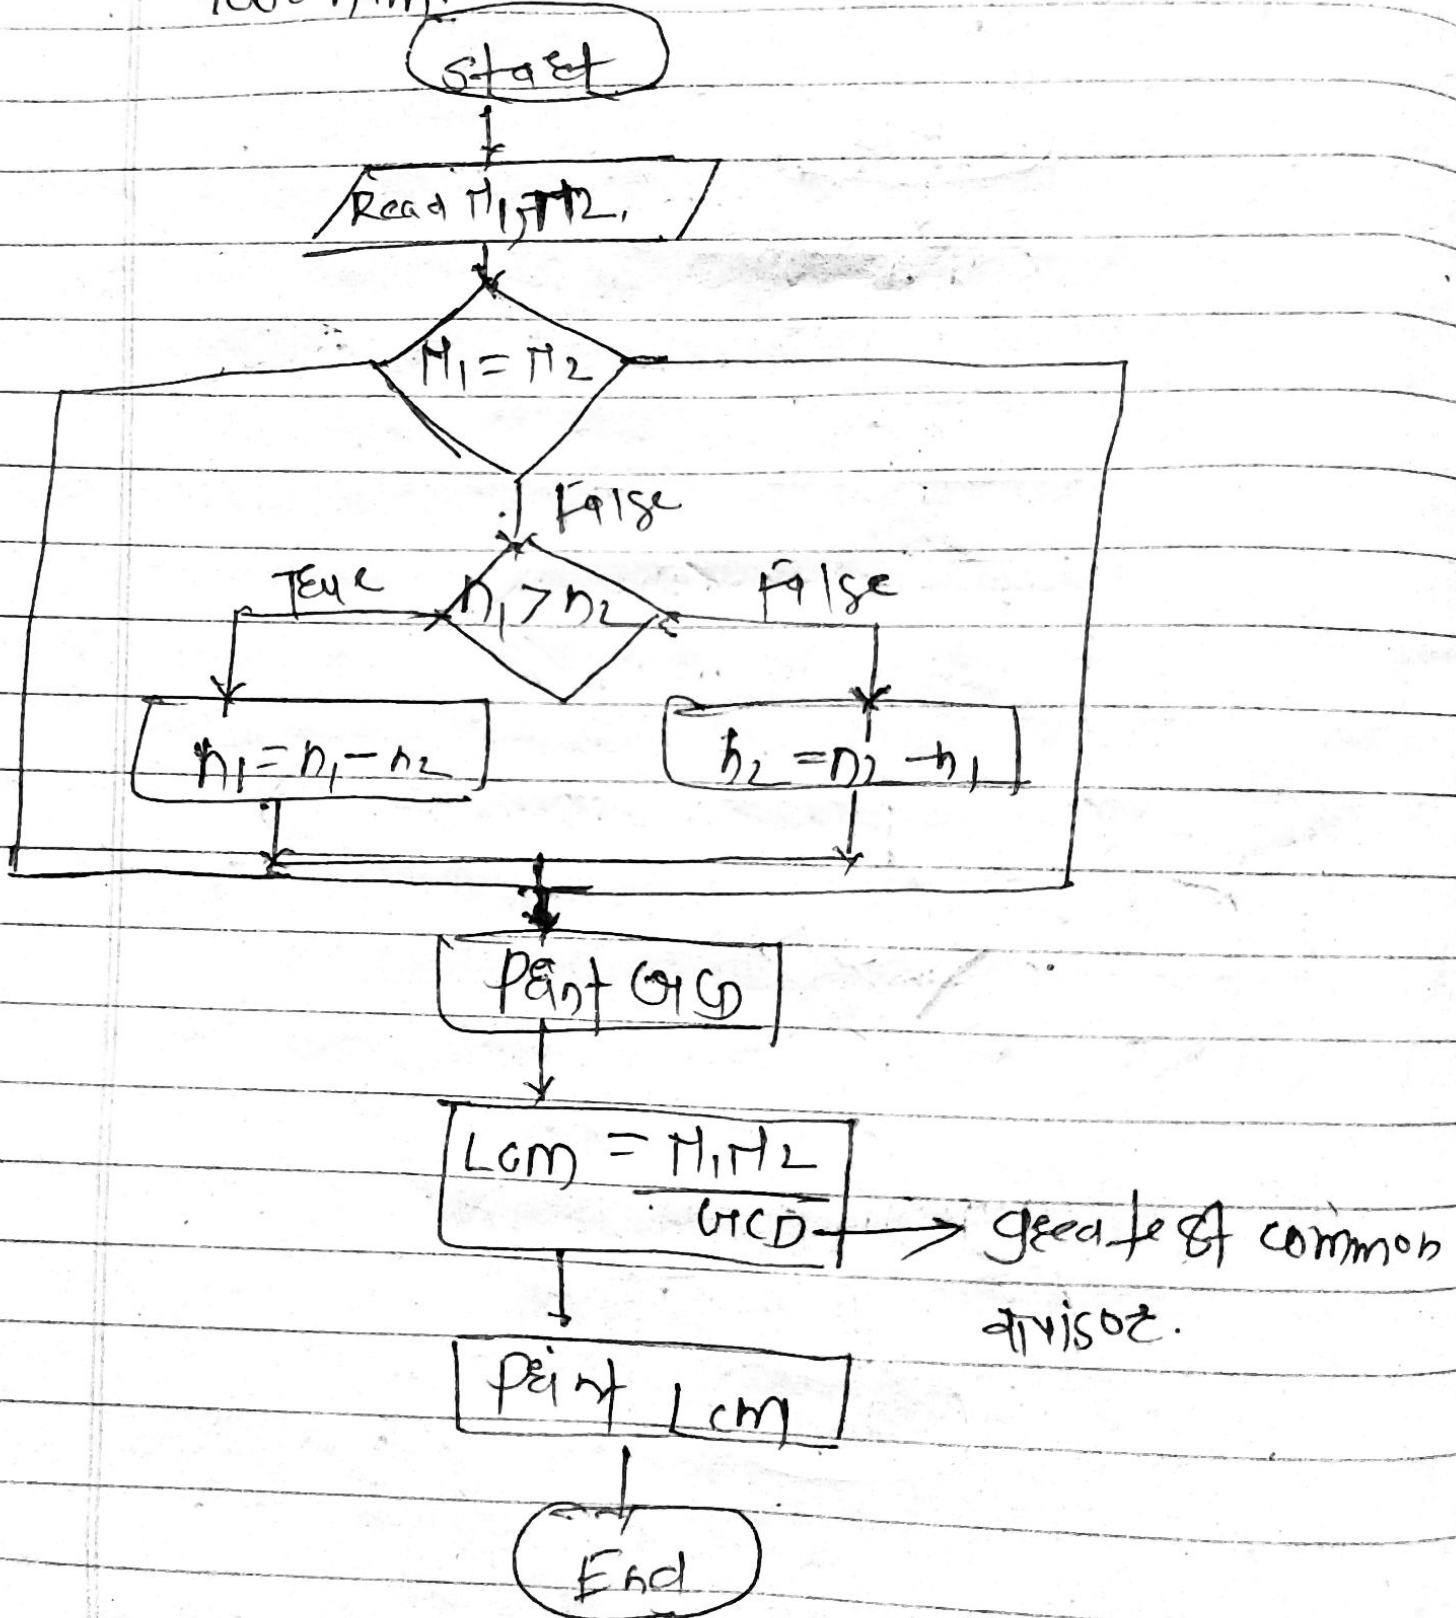 Start
Read N1, N2.
N1 = N2
False
True
n1 > n2
False
n1 = n1 - n2
n2 = n2 - n1
Print GCD
Lcm = N1N2
GCD → greatest common
divisor.
Print Lcm
End